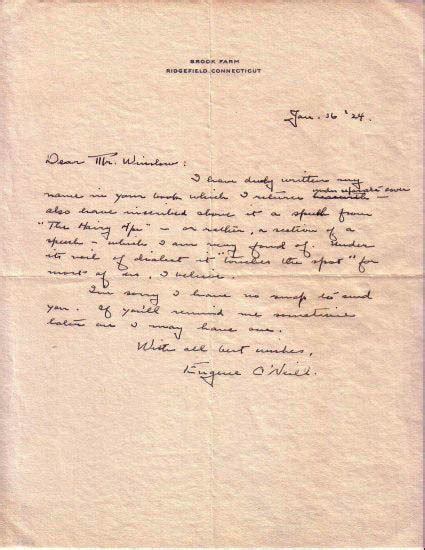 BROOK FARM
RIDGEFIELD CONNECTICUT
Jan. 16 '24.
Dear Mr. Winslow:
I have duly written my
name in your book which I return under separate cover
also have inscribed above it a speech from
"The Hairy Ape" - or rather, a section of a
speech - which I am very fond of. Under
its veil of dialect it "touches the spot" for
most of us, I believe.
I'm sorry I have no snap to send
you. If you'll remind me sometime
later on I may have one.
With all best wishes,
Eugene O'Neill.